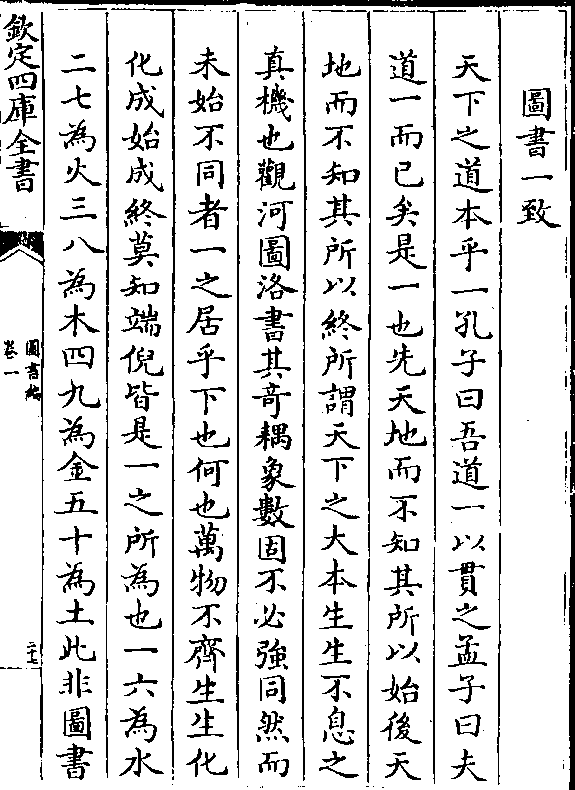 圖書一致
天下之道本乎一孔子曰吾道一以貫之孟子曰夫
道一而已矣是一也先天地而不知其所以始後天
地而不知其所以終所謂天下之大本生生不息之
真機也觀河圖洛書其竒耦象數固不必強同然而
未始不同者一之居乎下也何也萬物不齊生生化
化成始成終莫知端倪皆是一之所為也一六為水
二七為火三八為木四九為金五十為土此非圖書
欽定四庫全書
圖書編
卷一
二十七